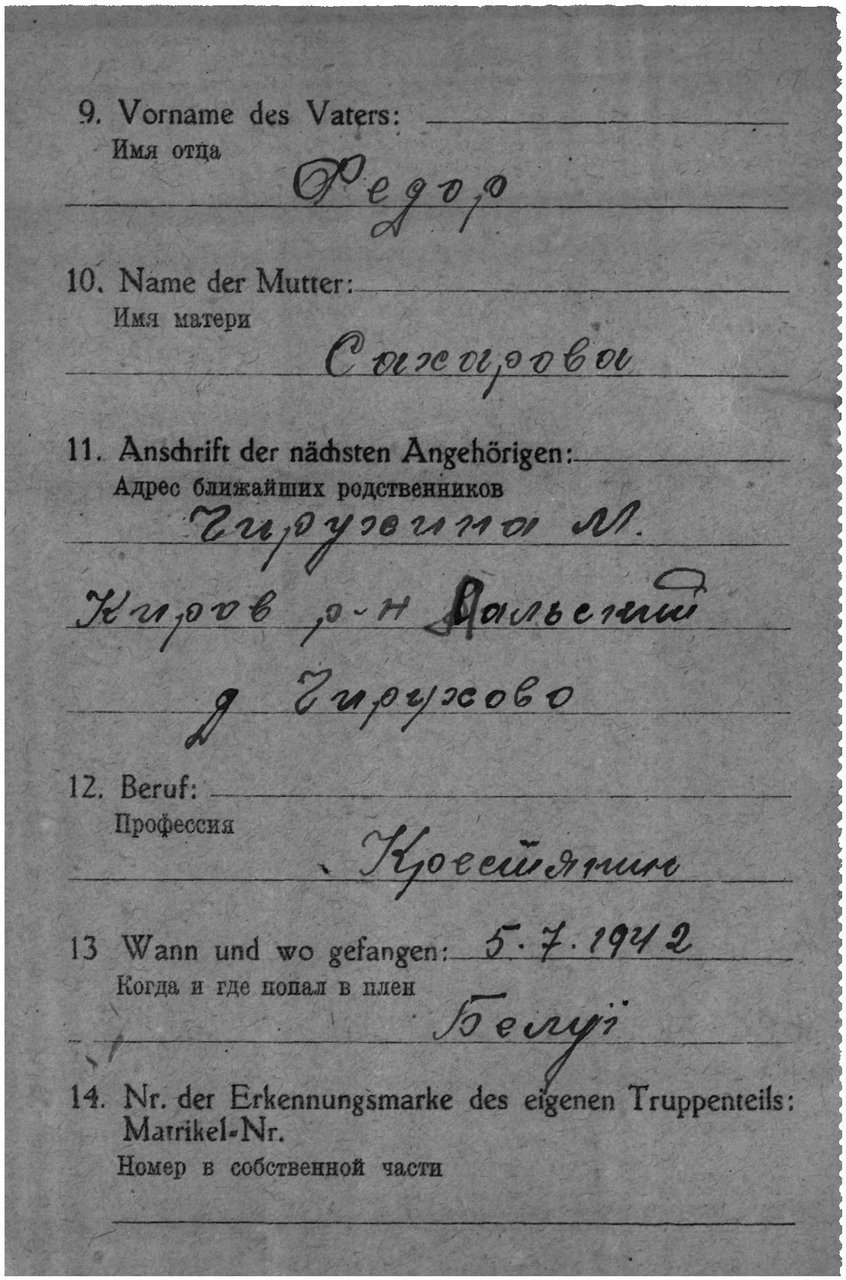 9. Vorname des Vaters:
Имя отца
Федор
10. Name der Mutter:
Имя матери
Сахарова
11. Anschrift der nächsten Angehörigen:
Адрес ближайших родственников
Чирухина М.
Киров р-н
д Чирухово
12. Beruf:
Профессия
Крестянин
13 Wann und wo gefangen: 5.7.1942
Когда и где попал в плен
14. Nr. der Erkennungsmarke des eigenen Truppenteils:
Matrikel-Nr.
Номер в собственной части